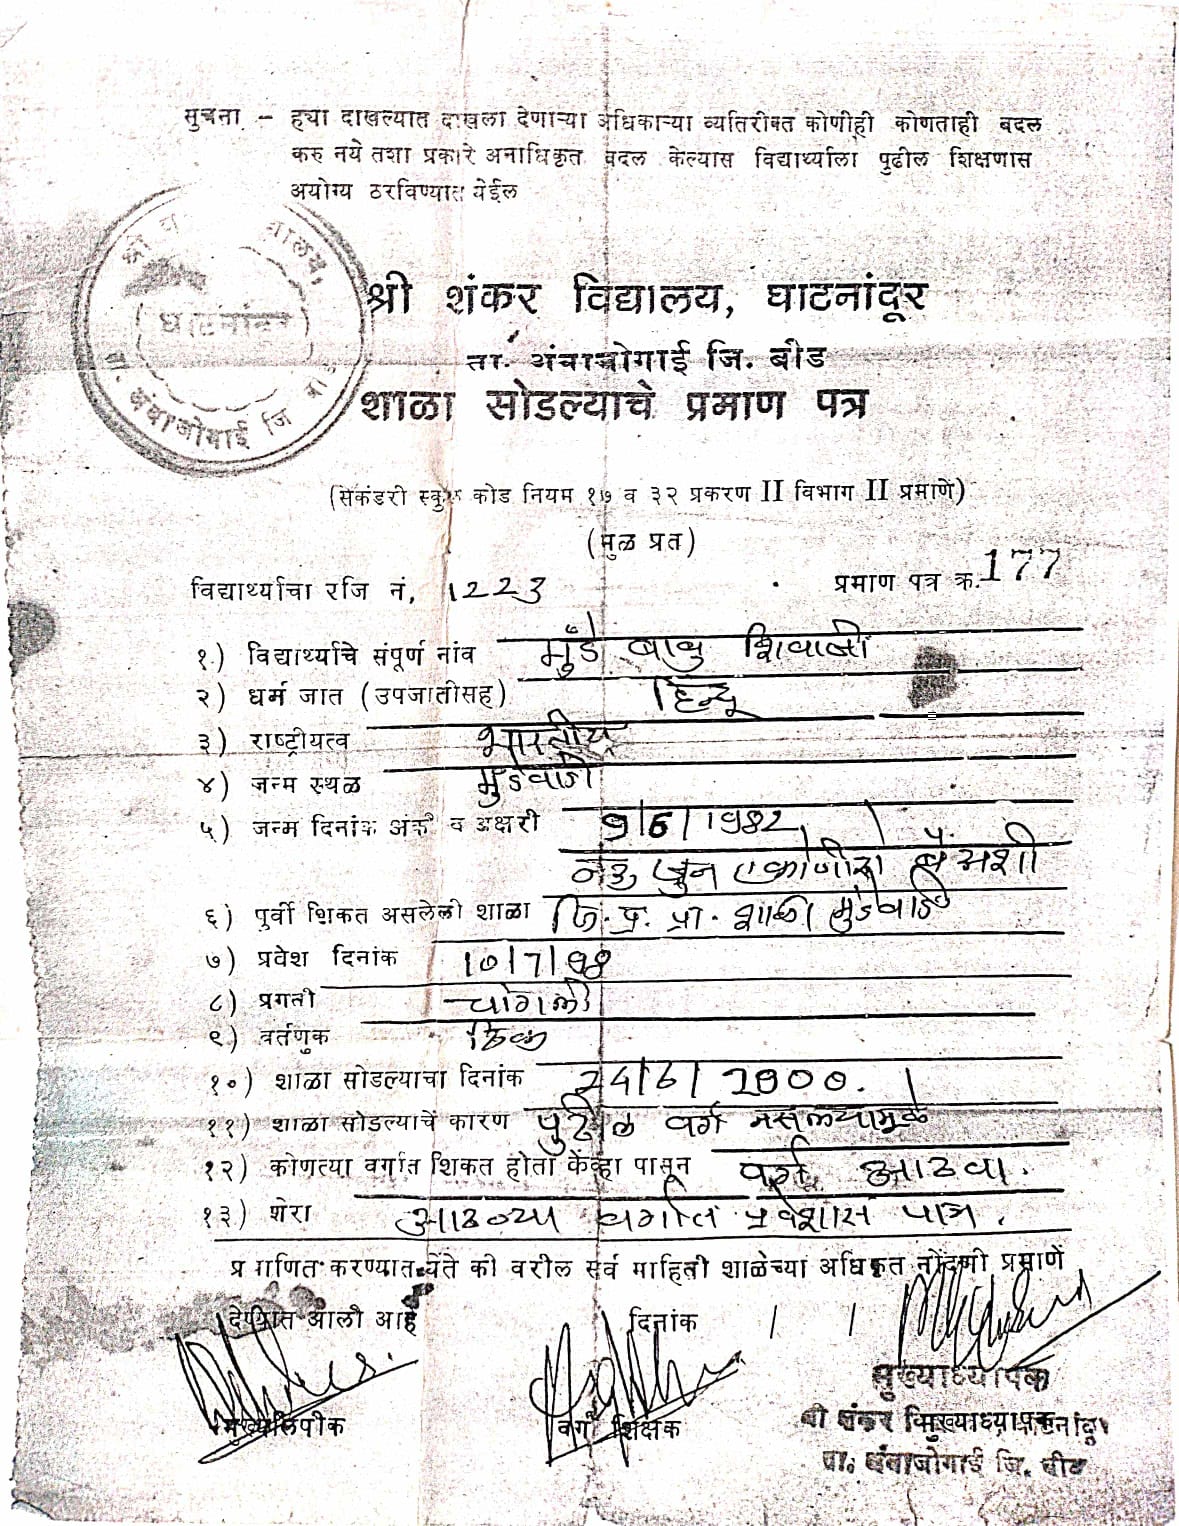 सुचना - ह्या दाखल्यात दाखला देणाऱ्या अधिकाऱ्या व्यतिरीक्त कोणीही कोणताही बदल
करु नये तशा प्रकारे अनाधिकृत बदल केल्यास विद्यार्थ्याला पुढील शिक्षणास
अयोग्य ठरविण्यात येईल
श्री शंकर विद्यालय, घाटनांदूर
ता. अंबाजोगाई जि. बीड
शाळा सोडल्याचे प्रमाण पत्र
(सेकंडरी स्कुल कोड नियम १७ व ३२ प्रकरण II विभाग II प्रमाणे)
(मुळ प्रत)
विद्यार्थ्याचा रजि नं, 1223 प्रमाण पत्र क्र. 177
१) विद्यार्थ्याचे संपूर्ण नांव मुंडे बाबु शिवाजी
२) धर्म जात (उपजातीसह) हिन्दू
३) राष्ट्रीयत्व भारतीय
४) जन्म स्थळ मुंडेवाडी
५) जन्म दिनांक अंकी व अक्षरी 9/6/1982
नऊ जुन एकोणीसशे ब्यॅंअशी
६) पुर्वी शिकत असलेली शाळा जि. प्र. प्रा. शाळा मुंडेवाडी
७) प्रवेश दिनांक 10/7/98
८) प्रगती चांगली
९) वर्तणुक ठिक
१०) शाळा सोडल्याचा दिनांक /6/2000.
११) शाळा सोडल्याचें कारण पुढील वर्ग नसल्यामुळे
१२) कोणत्या वर्गात शिकत होता केंव्हा पासून वर्ग आठवा.
१३) शेरा आठव्या वर्गात प्रवेशास पात्र.
प्रमाणित करण्यात येते की वरील सर्व माहिती शाळेच्या अधिकृत नोंदणी प्रमाणें
देण्यात आली आहे दिनांक / /
मुख्याध्यापक
मुख्यलिपीक वर्ग शिक्षक मुख्याध्यापक
श्री शंकर वि
ता. अंबाजोगाई जि. बीड
घाटनांदूर
ता. अंबाजोगाई जि